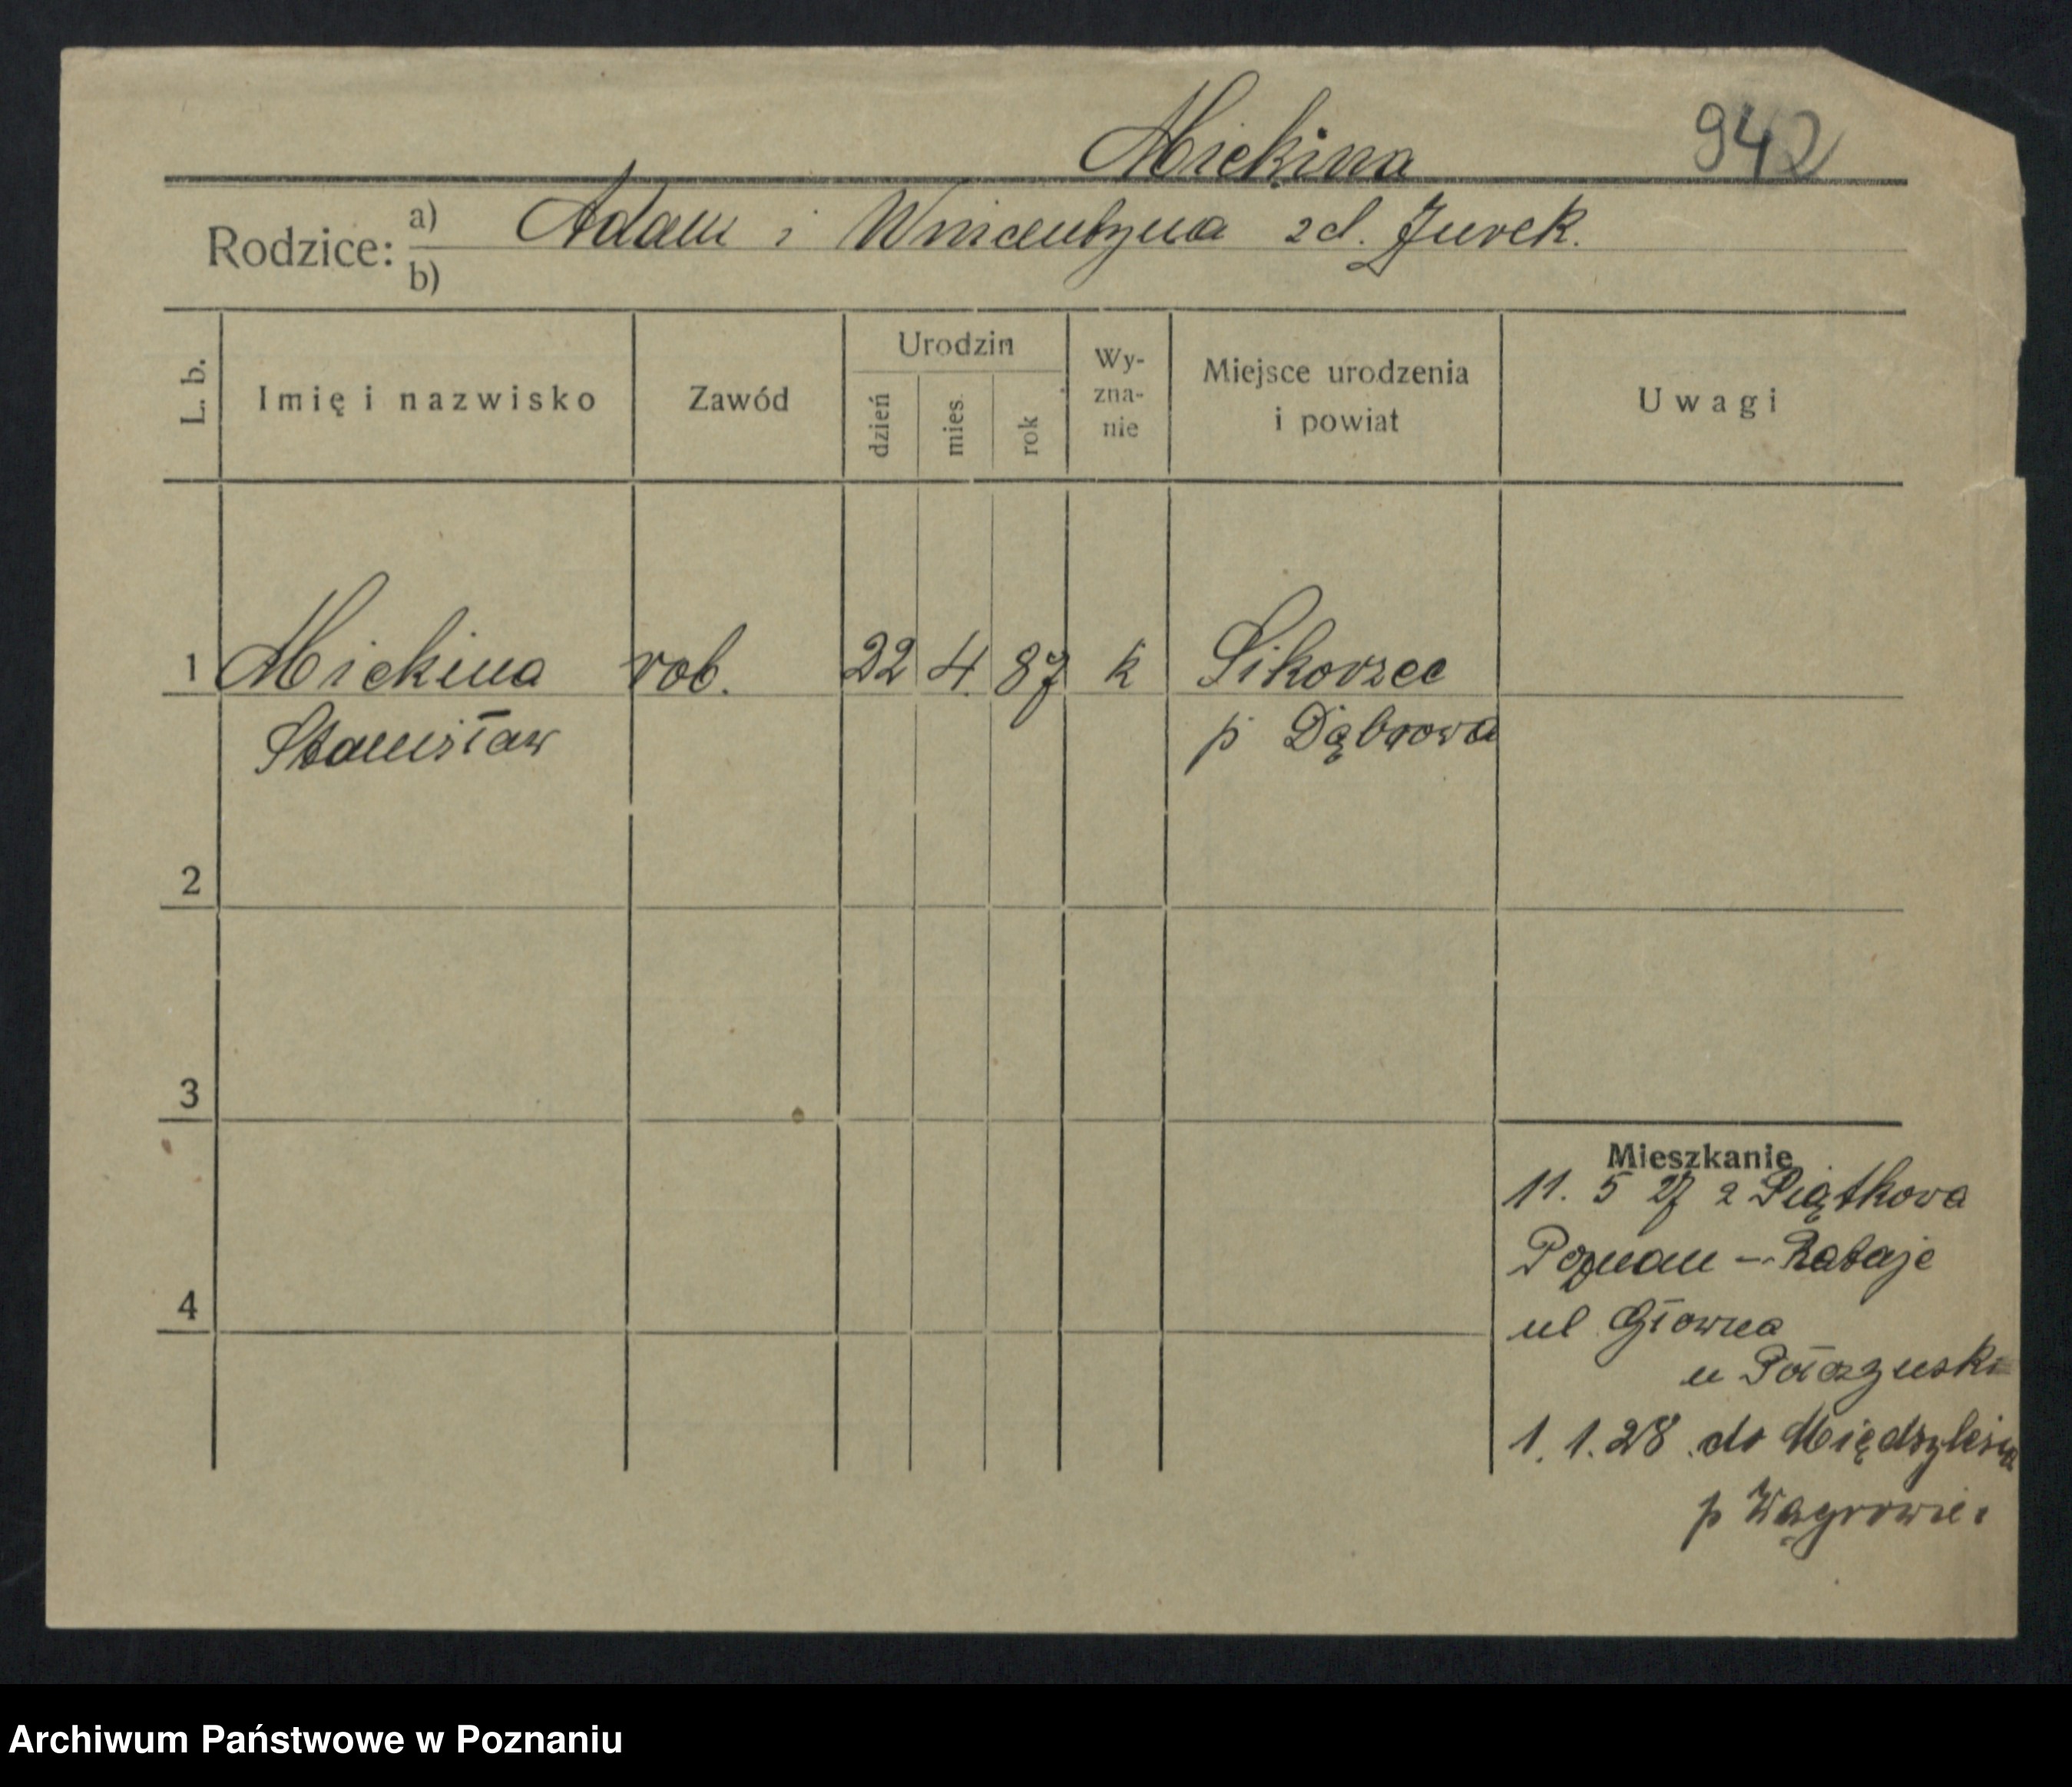 Miekina 942
Rodzice: a) Adam i Wnicentyna zd. Jurek.
b)
L. b. Imię i nazwisko Zawód Urodzin dzień mies. rok Wy-zna-nie Miejsce urodzenia i powiat Uwagi
1 Miekina rob. 22 4. 87 k Sikorzec
Stanisław p Dąbrowa
2
3
Mieszkanie
11. 5 27 z Piątkowa
Poznan - Rataje
4
ul Głowna
u
1. 1. 28 do Międzylesia
p Wągrowiec
Archiwum Państwowe w Poznaniu